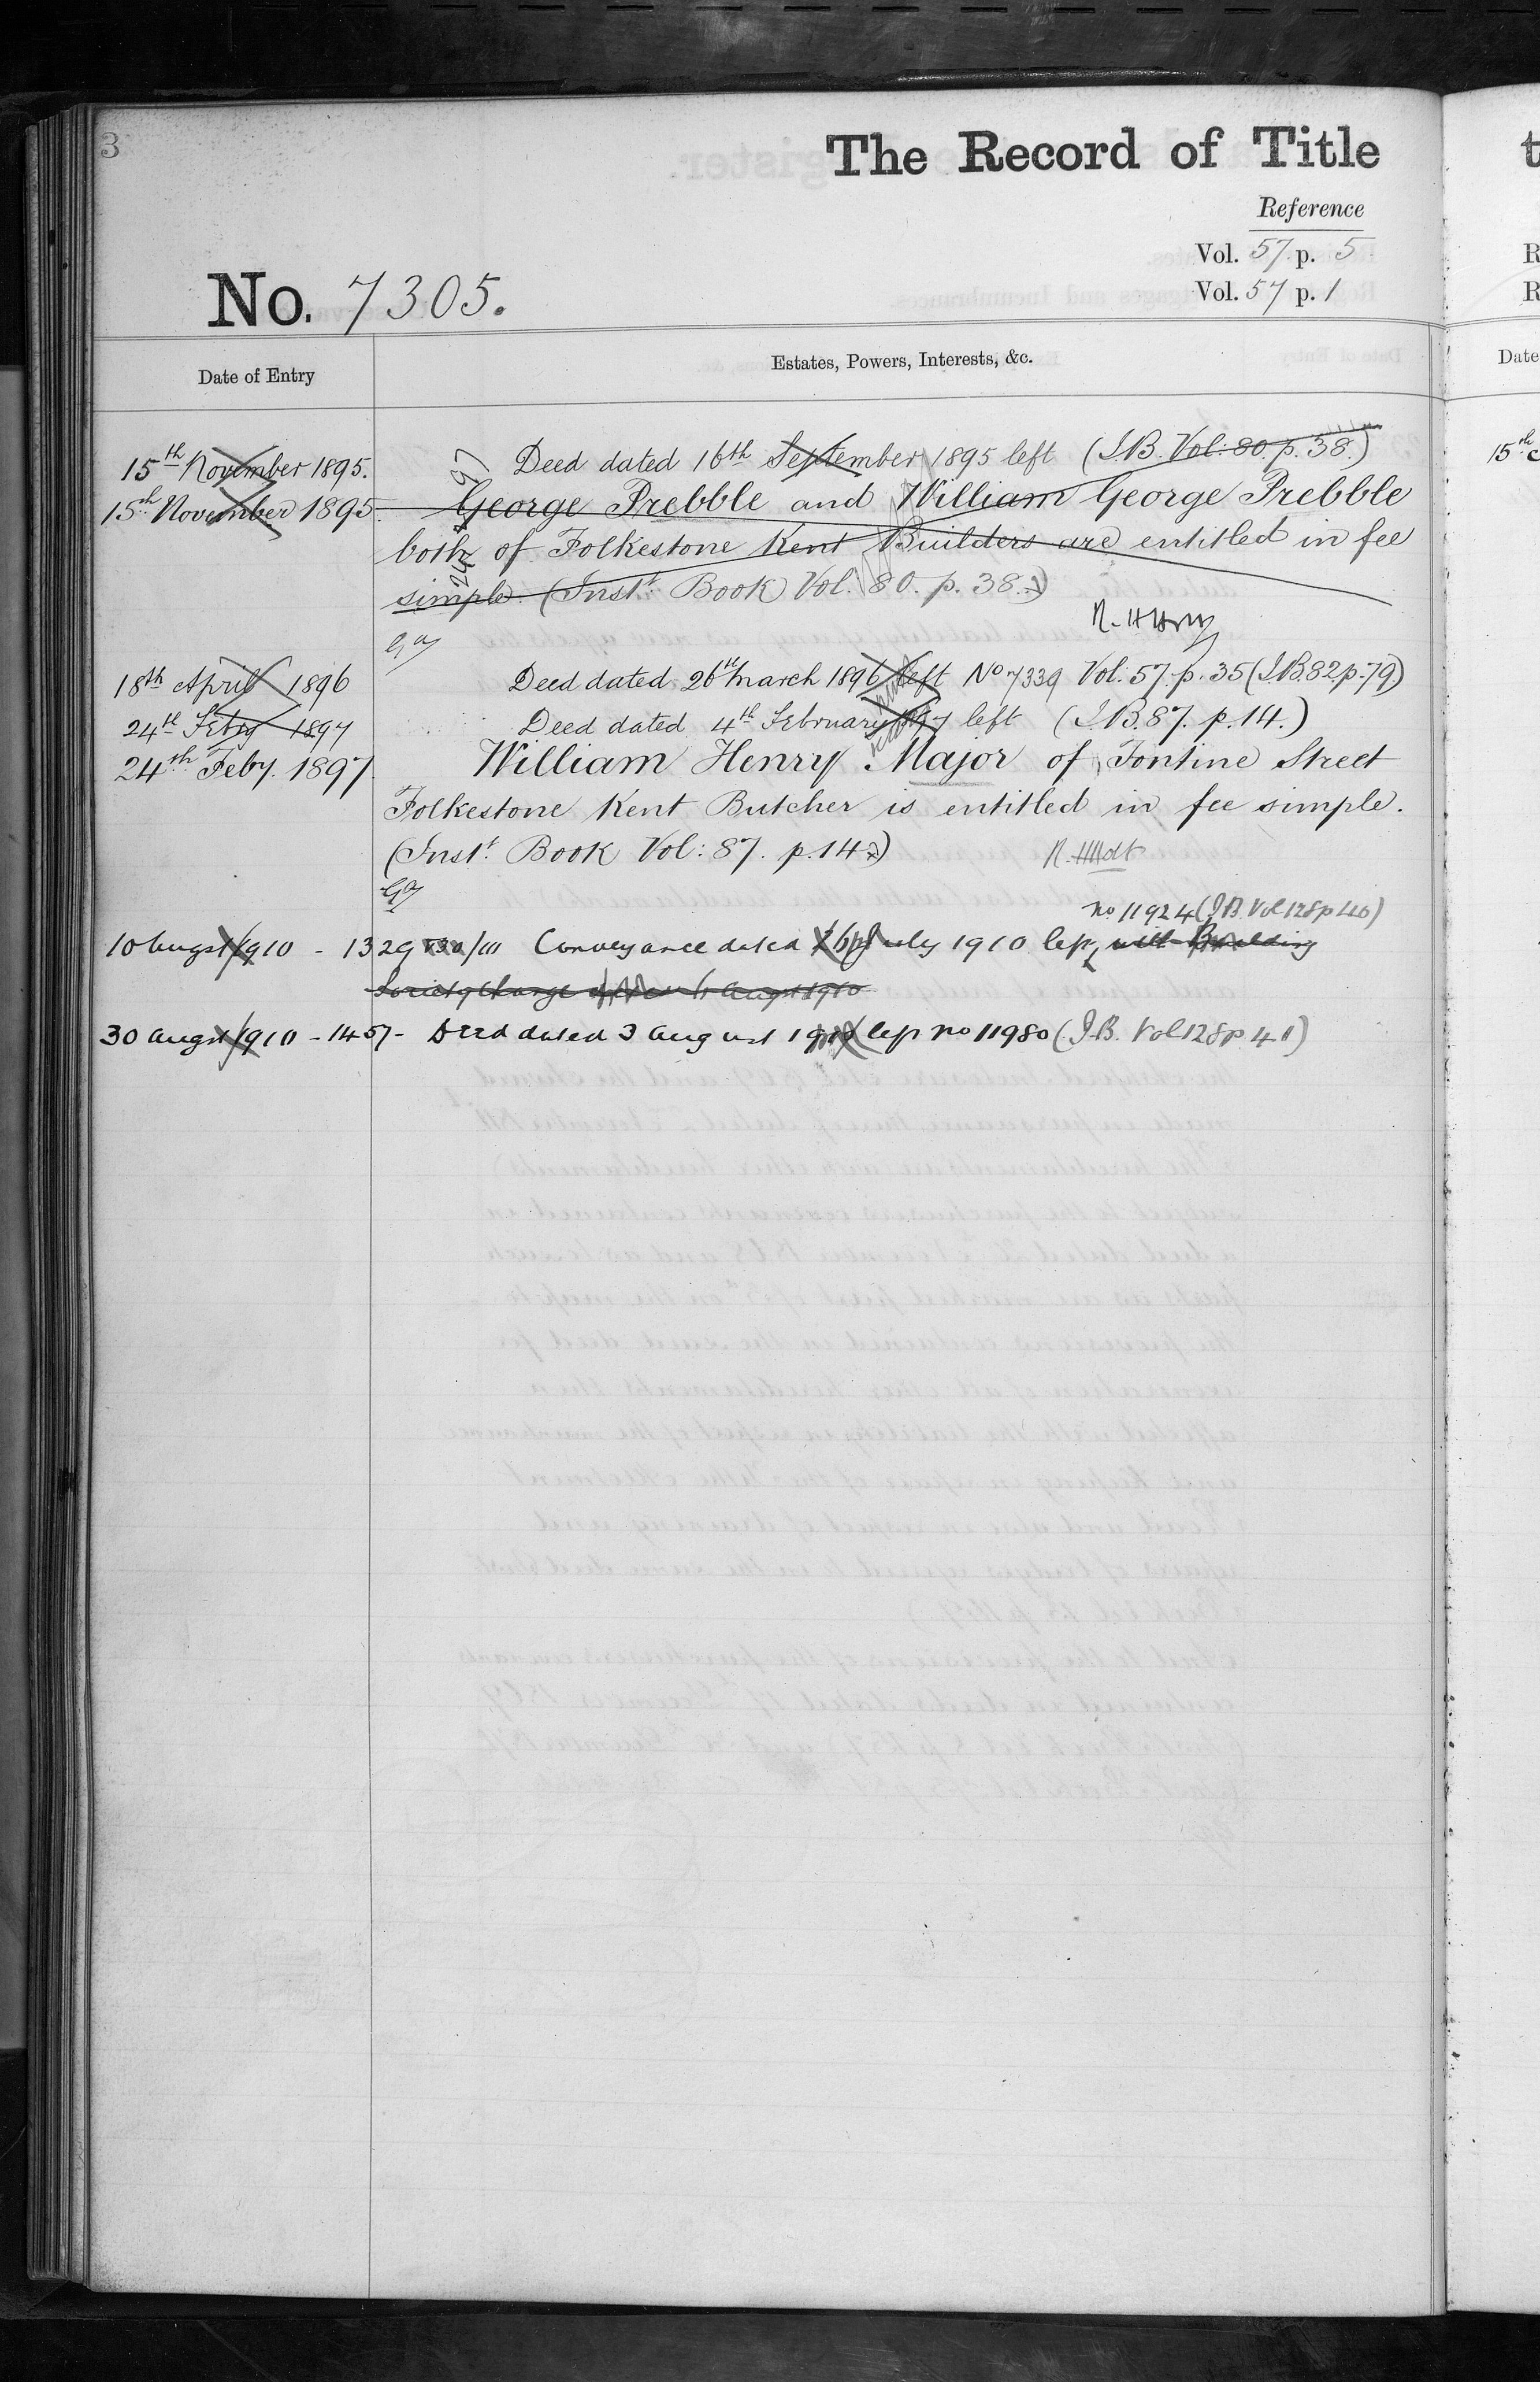 3
The Record of Title
Reference
Vol. 57 p. 5
Vol. 57 p. 1
No. 7305.
Date of Entry
Estates, Powers, Interests, &c.
15th November 1895.
Deed dated 16th September 1895 left (I.B. Vol: 80. p. 38.)
15th November 1895.
George Prebble and William George Prebble
both of Folkestone Kent Builders are entitled in fee
simple. (Inst. Book Vol: 80. p. 38.)
18th April 1896
Deed dated 26th March 1896 left No 7339 Vol. 57. p. 35 (I.B. 82 p. 79)
24th Feby 1897
Deed dated 4th February 1897 left (I.B. 87. p. 14.)
24th Feby. 1897
William Henry Major of Tontine Street
Folkestone Kent Butcher is entitled in fee simple.
(Inst. Book Vol: 87. p. 14.)
no 11924 (I.B. Vol 128 p 40)
10 Augst 1910 - 1329 Conveyance dated July 1910 left with Building
Society Charge dated Augt 1910
30 Augst 1910 - 1457 - Deed dated 3 August 1910 left no 11980 (I.B. Vol 128 p 41)